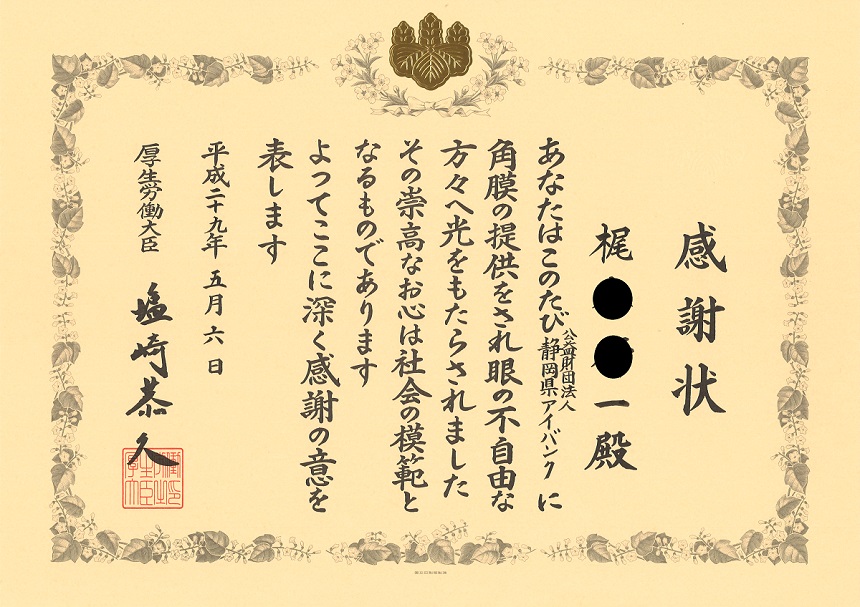 感謝状
梶●●一殿
あなたはこのたび公益財団法人静岡県アイバンクに
角膜の提供をされ眼の不自由な
方々へ光をもたらされました
その崇高なお心は社会の模範と
なるものであります
よってここに深く感謝の意を
表します
平成二十九年五月六日
厚生労働大臣 塩崎恭久